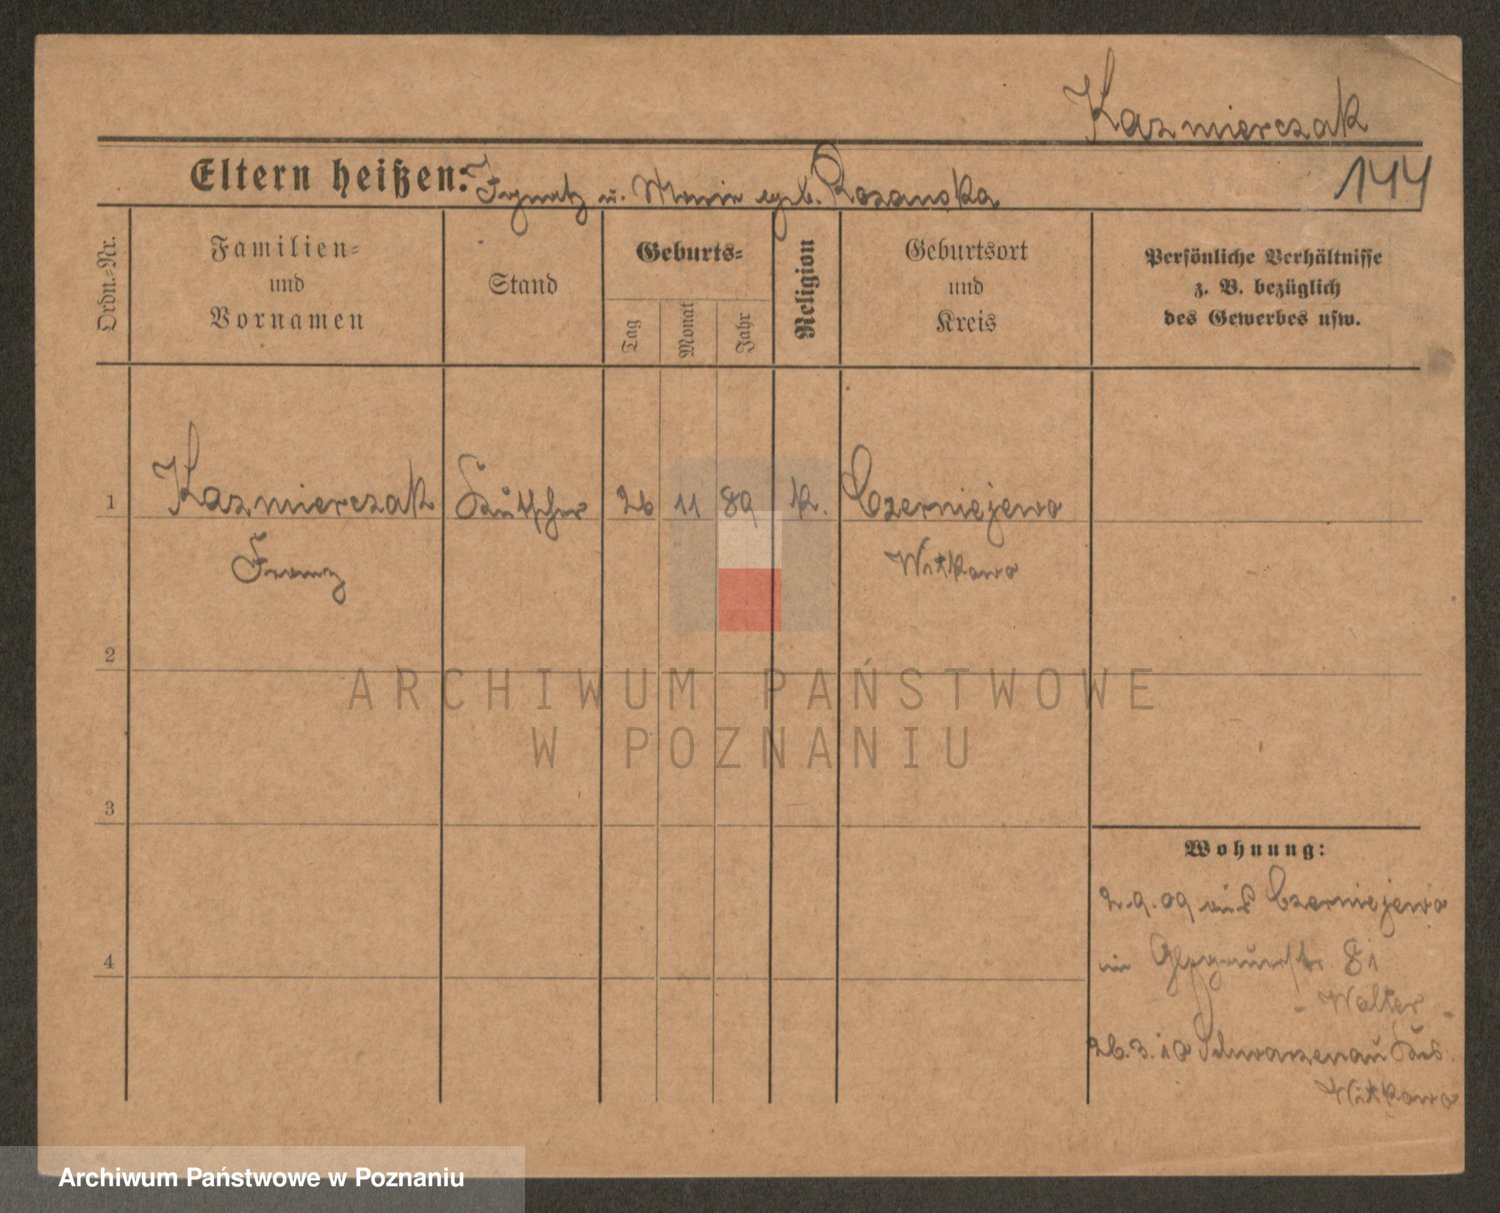 Kazmierczak
Eltern heißen: Ignatz u. Marie geb. Rozanska
144
Ordn.-Nr.
Familien-
und
Vornamen
Stand
Geburts-
Tag
Monat
Jahr
Religion
Geburtsort
und
Kreis
Persönliche Verhältnisse
z. B. bezüglich
des Gewerbes usw.
1 Kazmierczak Kutscher 26 11 89 k. Czerniejewo
Franz Witkowo
2
ARCHIWUM PAŃSTWOWE
W POZNANIU
3
Wohnung:
2.9.09 aus Czerniejewo
in 81
- Walter -
4
26.3.10 Schwarzenau Krs.
Witkowo
Archiwum Państwowe w Poznaniu